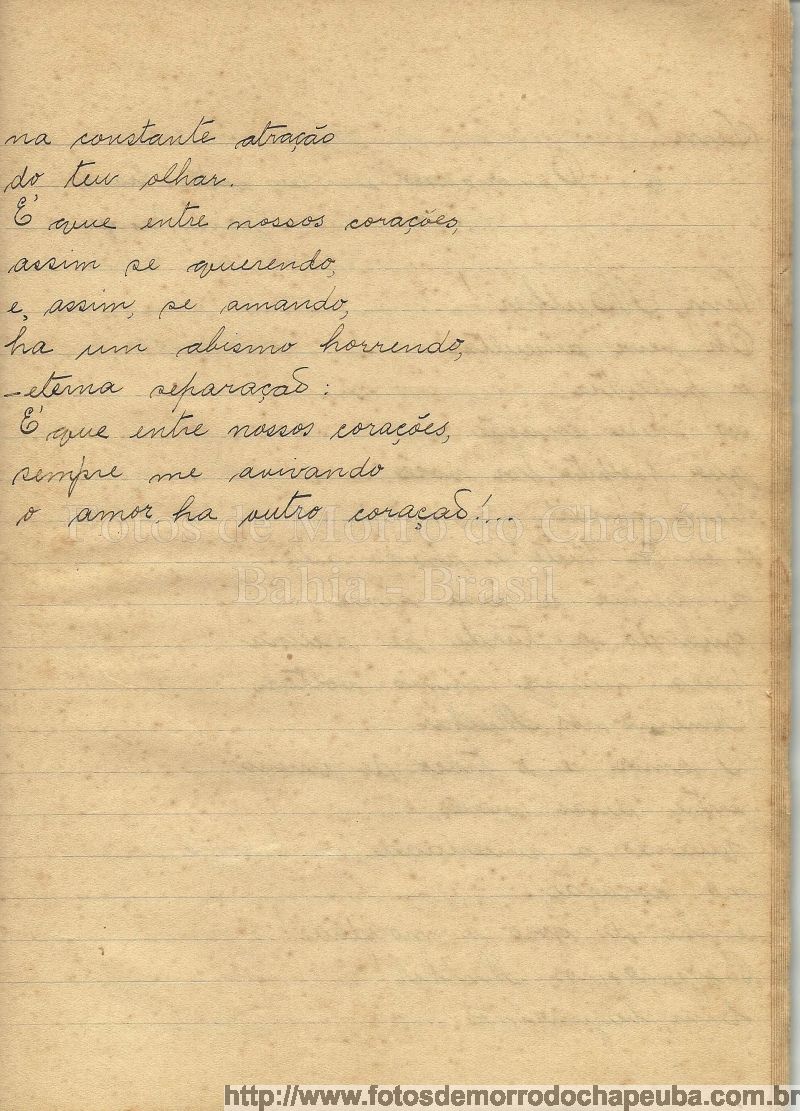 na constante atração
do teu olhar.
É que entre nossos corações,
assim se querendo,
e, assim, se amando,
ha um abismo horrendo,
-eterna separação:
É que entre nossos corações,
sempre me avivando
o amor, ha outro coração!...
Fotos de Morro do Chapéu
Bahia - Brasil
http://www.fotosdemorrodochapeuba.com.br